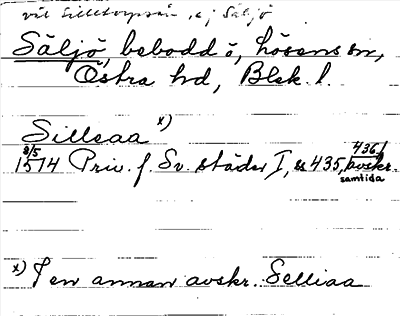 väl Silletorpsån, ej Säljö
Säljö, bebodd ö, Lösens sn,
Östra hd, Blek. l.
Sillsaa x)
8/5
1574 Priv. f. Sv. städer I, s 435, 436 (avskr.
samtida
x) I en annan avskr. Selliaa